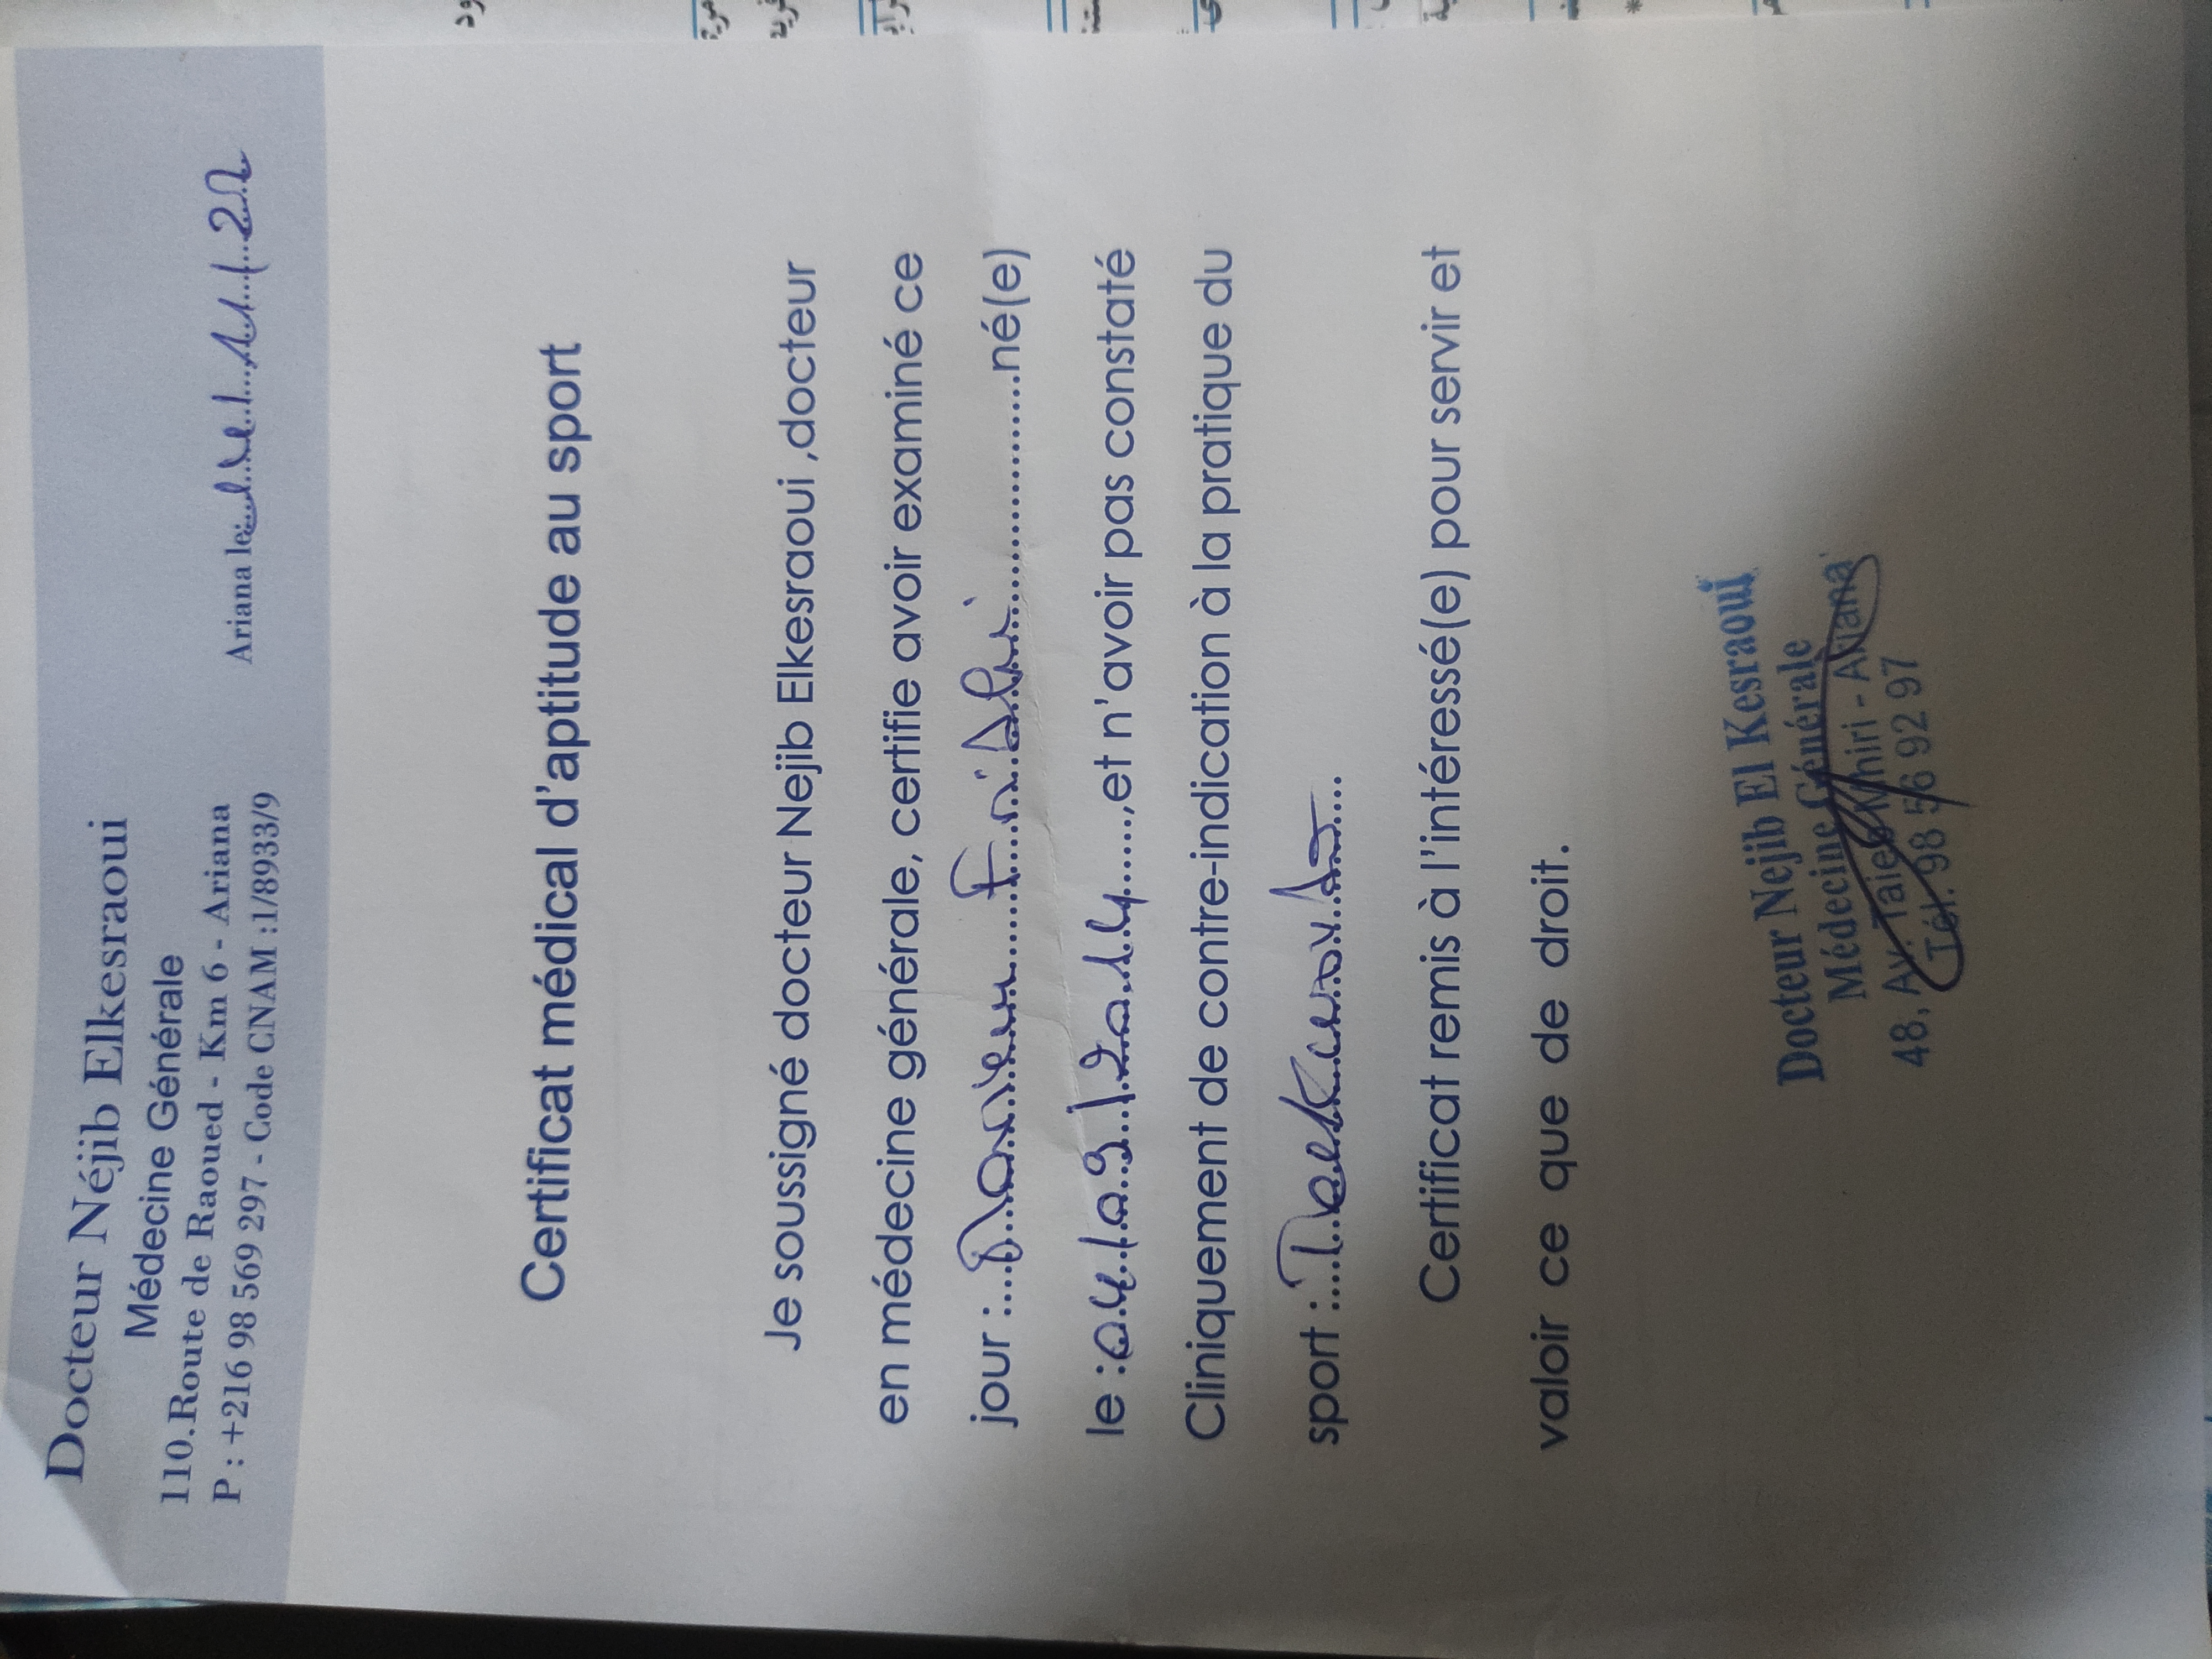 Docteur Néjib Elkesraoui
Médecine Générale
110.Route de Raoued - Km 6 - Ariana
P : +216 98 569 297 - Code CNAM :1/8933/9
Ariana le: 11/22
Certificat médical d'aptitude au sport
Je soussigné docteur Nejib Elkesraoui ,docteur
en médecine générale, certifie avoir examiné ce
jour :..............................né(e)
le :04/09/2014......,et n'avoir pas constaté
Cliniquement de contre-indication à la pratique du
sport :....Taekwondo....
Certificat remis à l'intéressé(e) pour servir et
valoir ce que de droit.
Docteur Nejib El Kesraoui
Médecine Générale
48, Av. Taieb Mhiri - Ariana
Tél. 98 56 92 97